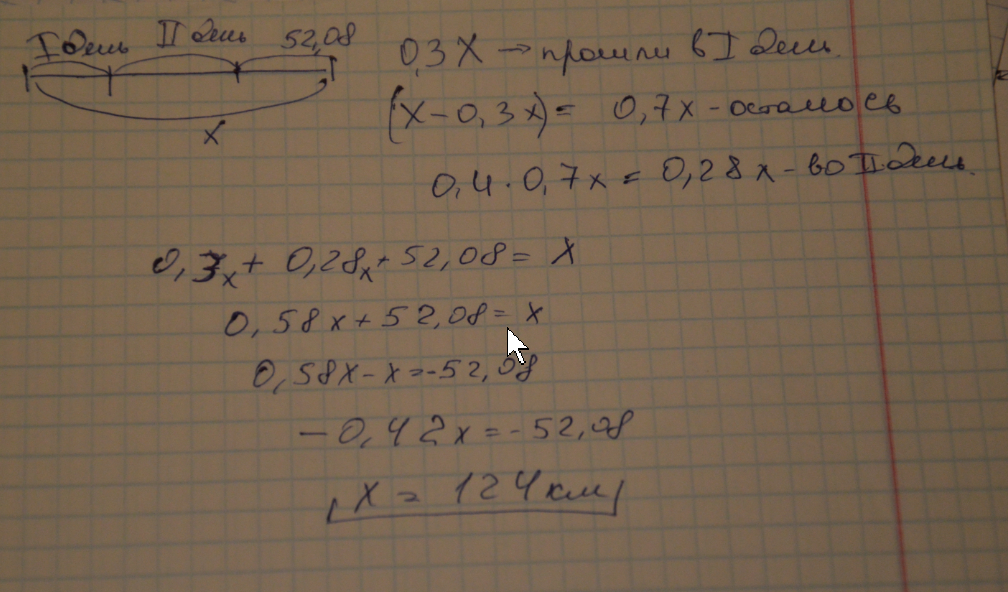 I день II день 52,08
x
0,3x → прошли в I день.
(x - 0,3x) = 0,7x - осталось
0,4 · 0,7x = 0,28x - во II день.
0,3x + 0,28x + 52,08 = x
0,58x + 52,08 = x
0,58x - x = -52,08
- 0,42x = - 52,08
x = 124 км